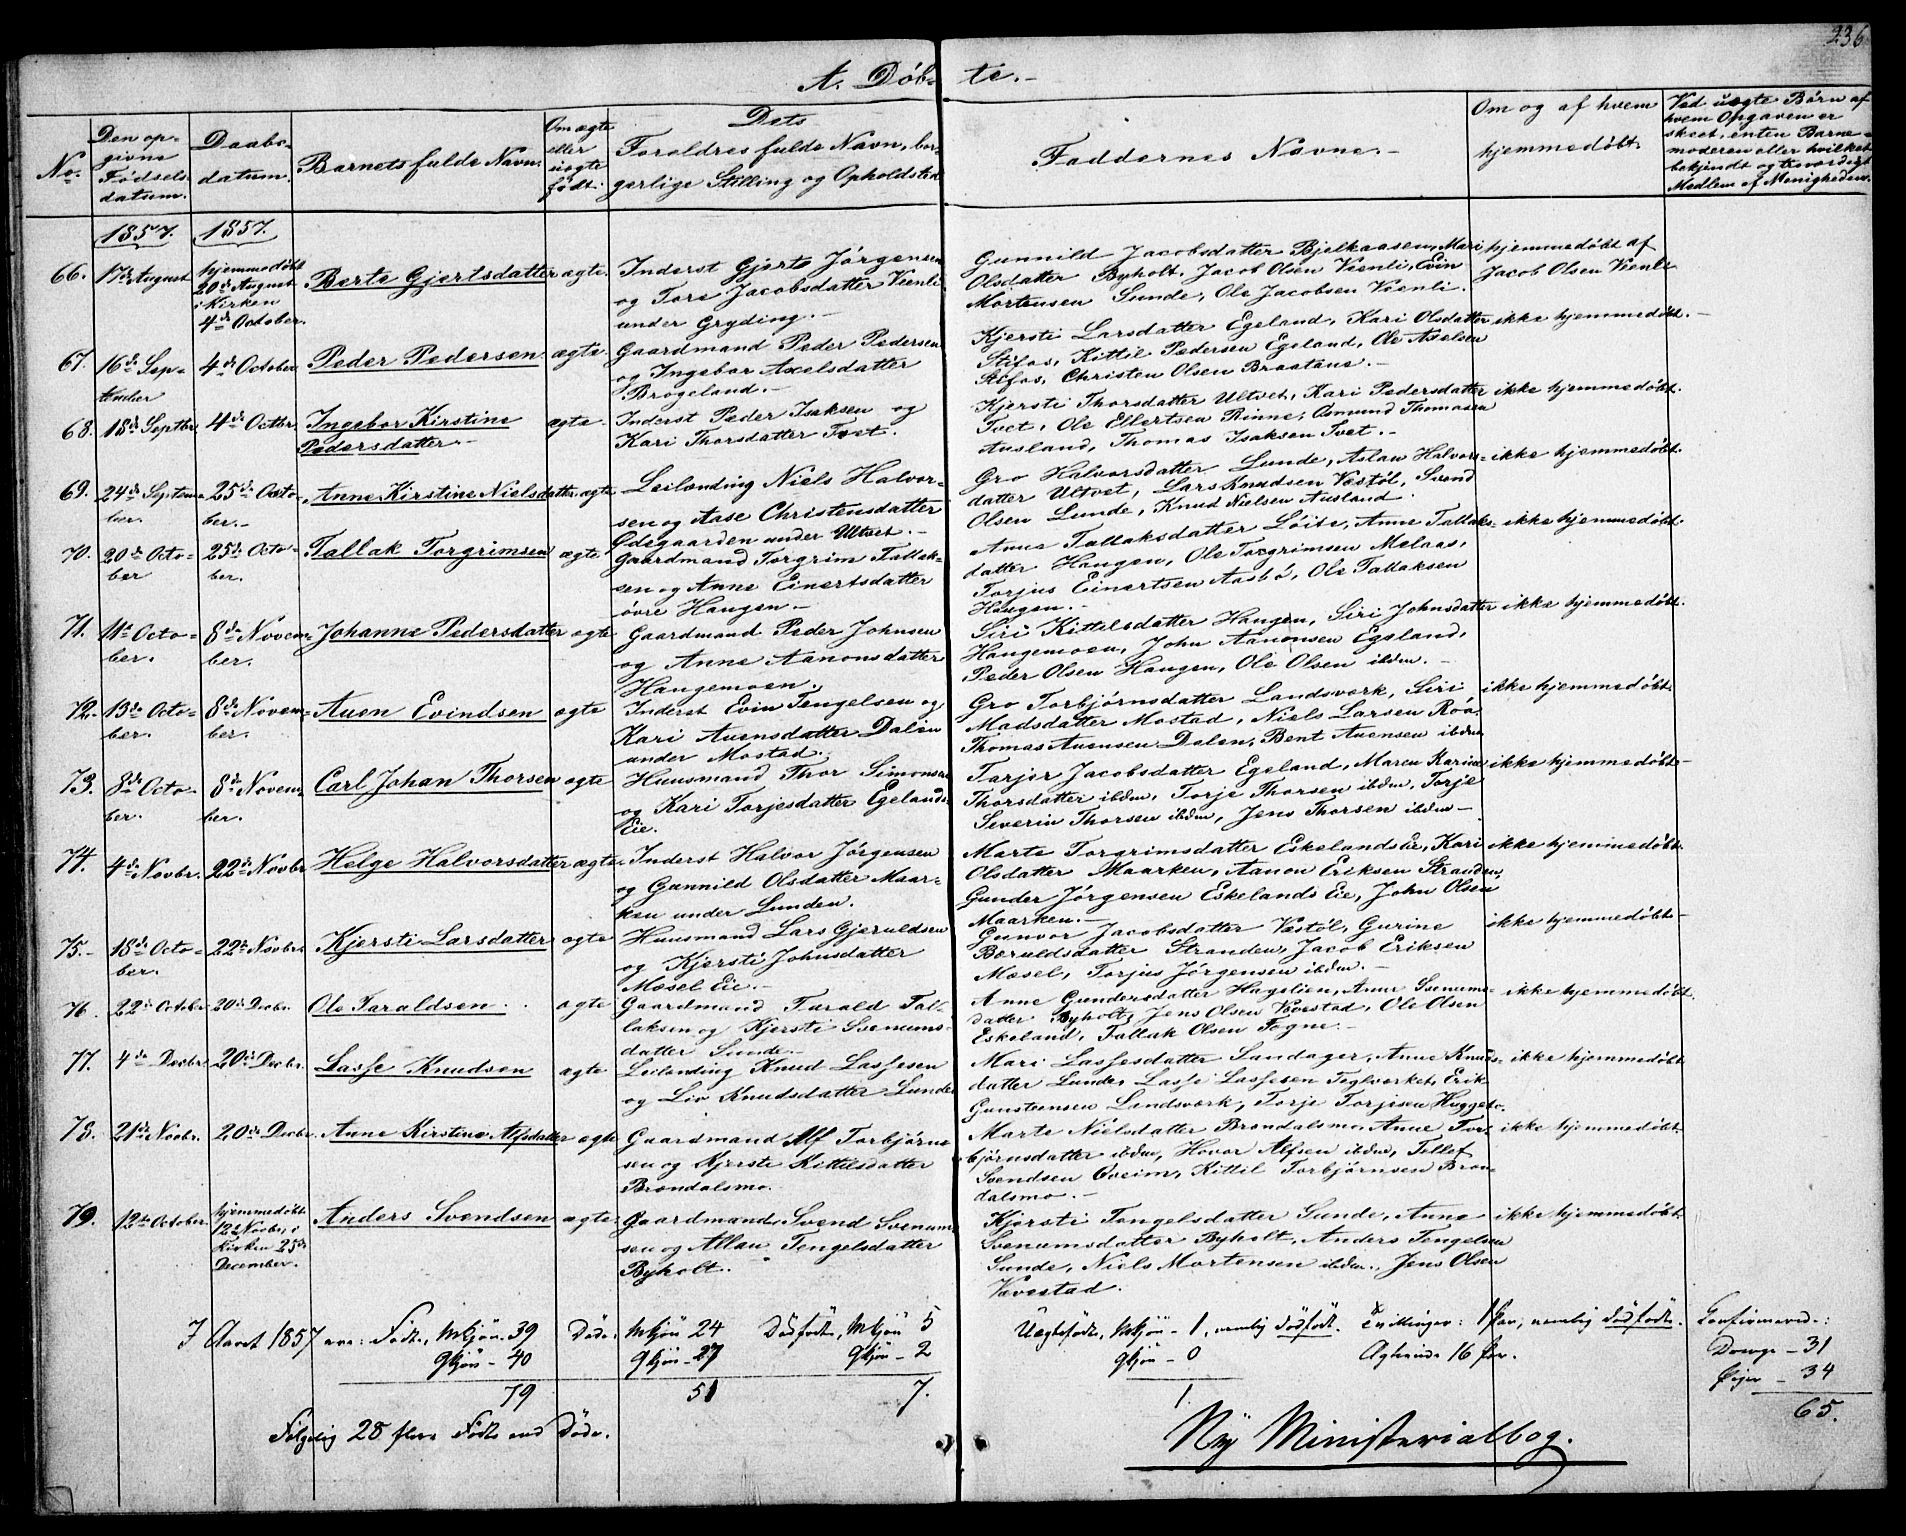 236
A. Döb- te.-
No. Den op-givne Fødsels datum. Daabs-datum. Barnets fulde Navn. Om ægte eller uægte født. Dets Foreldres fulde Navn, bor-gerlige Stilling og Opholdsted Faddernes Navne.- Om og af hvem hjemmedøbt. Ved uægte Børn af hvem Opgaven er skeet, enten Barne-moderen eller hvilket bekjendt og troværdigt Medlem af Menigheden.
1857. 1857.
66. 17de August hjemmedöbt 20de August i Kirken 4de October. Berte Gjertsdatter ægte. Inderst Gjert Jörgensen og Tore Jacobsdatter Veenli under Gryding.- Gunnild Jacobsdatter Bjelkaasen, Mari Olsdatter Byholt, Jacob Olsen Veenli, Evin Mortensen Sunde, Ole Jacobsen Veenli. hjemmedöbt af Jacob Olsen Veenli
67. 16de Sep-tember 4de October Peder Pedersen ægte. Gaardmand Peder Pedersen og Ingebor Axelsdatter Brøgeland.- Kjersti Larsdatter Egeland, Kari Olsdatter Stifos, Kittil Pedersen Egeland, Ole Axelsen Stifos, Christen Olsen Braatene.- ikke hjemmedöbt.-
68. 18de Septbr. 4de Octbr. Ingebor Kirstine Pedersdatter.- ægte. Inderst Peder Isaksen og Kari Thorsdatter Tvet. Kjersti Thorsdatter Ultvet, Kari Pedersdatter Tvet, Ole Ellertsen Rinne, Osmund Thomasen Ausland, Thomas Isaksen Tvet.- ikke hjemmedöbt.
69. 24de Septem-ber. 25de Octo-ber.- Anne Kirstine Nielsdatter. ægte. Leilænding Niels Halvor-sen og Aase Christensdatter Ødegaarden under Ultvet.- Gro Halvorsdatter Lunde, Aslau Halvors-datter Ultvet, Lars Knudsen Vestöl, Svend Olsen Lunde, Knud Nielsen Ausland. ikke hjemmedöbt.
70. 20de Octo-ber 25de Octo-ber. Tallak Torgrimsen ægte Gaardmand Torgrim Tallak-sen og Anne Einertsdatter övre Haugen.- Anne Tallaksdatter Löite, Anne Tallaks-datter Haugen, Ole Torgrimsen Melaas, Torjus Einertsen Aasbö, Ole Tallaksen Haugen.- ikke hjemmedöbt.
71. 11te Octo-ber. 8de Novem-ber. Johanne Pedersdatter ægte Gaardmand Peder Johnsen og Anne Aanonsdatter Haugemoen. Siri Kittilsdatter Haugen, Siri Johnsdatter Haugemoen, John Aanonsen Egeland, Peder Olsen Haugen, Ole Olsen ibdm.- ikke hjemmedöbt.
72.- 13de Octo-ber. 8de Novem-ber. Auen Evindsen ægte Inderst Evin Tengelsen og Kari Auensdatter Dalen under Mostad. Gro Torbjørnsdatter Landsverk, Siri Madsdatter Mostad, Niels Larsen Roa, Thomas Auensen Dalen, Bent Auensen ibdm ikke hjemmedöbt.
73. 8de Octo-ber. 8de Novem-ber. Carl Johan Thorsen ægte Huusmand Thor Simonsen og Kari Torjesdatter Egelands Eie. Torjer Jacobsdatter Egeland, Maren Karine Thorsdatter ibdm, Torje Thorsen ibdm, Torje Severin Thorsen ibdm, Jens Thorsen ibdm- ikke hjemmedöbt-
74. 4de Novbr. 22de Novbr Helge Halvorsdatter ægte. Inderst Halvor Jörgensen og Gunnild Olsdatter Maar-ken under Lunden. Marte Torgrimsdatter Eskelands Eie, Kari Olsdatter Maarken, Aanon Eriksen Stranden, Gunder Jörgensen Eskelands Eie, John Olsen Maarken.- ikke hjemmedöbt.
75.- 18de Octo-ber. 22de Novbr. Kjersti Larsdatter ægte Huusmand Lars Gjeruldsen og Kjersti Johnsdatter Mæsel Eie.- Gunvor Jacobsdatter Vestöl, Gurine Beruldsdatter Stranden, Jacob Eriksen Mæsel, Torjus Jörgensen ibdm.- ikke hjemmedöbt-
76. 22de October 20de Decbr. Ole Taraldsen. ægte Gaardmand Tarald Tal-laksen og Kjersti Svenums-datter Sunde.- Anne Gundersdatter Hagelien, Anne Svenums-datter Byholt, Jens Olsen Vævestad, Ole Olsen Eskeland, Tallak Olsen Fogne.- ikke hjemmedöbt.
77. 4de Decbr. 20de Decbr. Lasse Knudsen ægte Leilending Knud Lassesen og Liv Knudsdatter Lunde Mari Lassesdatter Landager, Anne Knuds-datter Lunde, Lasse Lassesen Teglverket, Erik Gunstensen Landsverk, Torje Torjesen Hugget.. ikke hjemmedöbt
78. 21de Novbr. 20de Decbr. Anne Kirstine Alfsdatter ægte Gaardmand Alf Torbjörn-sen og Kjersti Kittilsdatter Brøndalsmo. Marte Nielsdatter Brøndalsmo, Anne Tor-bjørnsdatter ibdm, Hovor Alfsen ibdm, Tellef Svendsen Oveim, Kittil Torbjørnsen Brøn-dalsmo.- ikke hjemmedöbt.
79. 12te October hjemmedöbt 12te Novbr, i Kirken 25de December. Anders Svendsen ægte. Gaardmand Svend Svenum-sen og Allau Tengelsdatter Byholt. Kjersti Tengelsdatter Sunde, Anne Svenumsdatter Byholt, Anders Tengelsen Sunde, Niels Mortensen ibdm., Jens Olsen Vævestad. ikke hjemmedöbt.
I Aaret 1857 ere: Födte, Mkjön- 39 Døde: Mkjön 24 Dödfödte, Mkjön 5 Uægtefödte, Mkjön - 1, nemlig dödfödt. Tvillinger: 1 Par, nemlig dödfödte. Confirmerede:
Qkjön - 40 Qkjön - 27 Qkjön - 2 Qkjön - 0 Ægteviede 16 Par. Drenge - 31
79 51 7. 1. Piger - 34
65.
Følgelig 28 flere Födte end Döde.
Ny Ministerialbog.